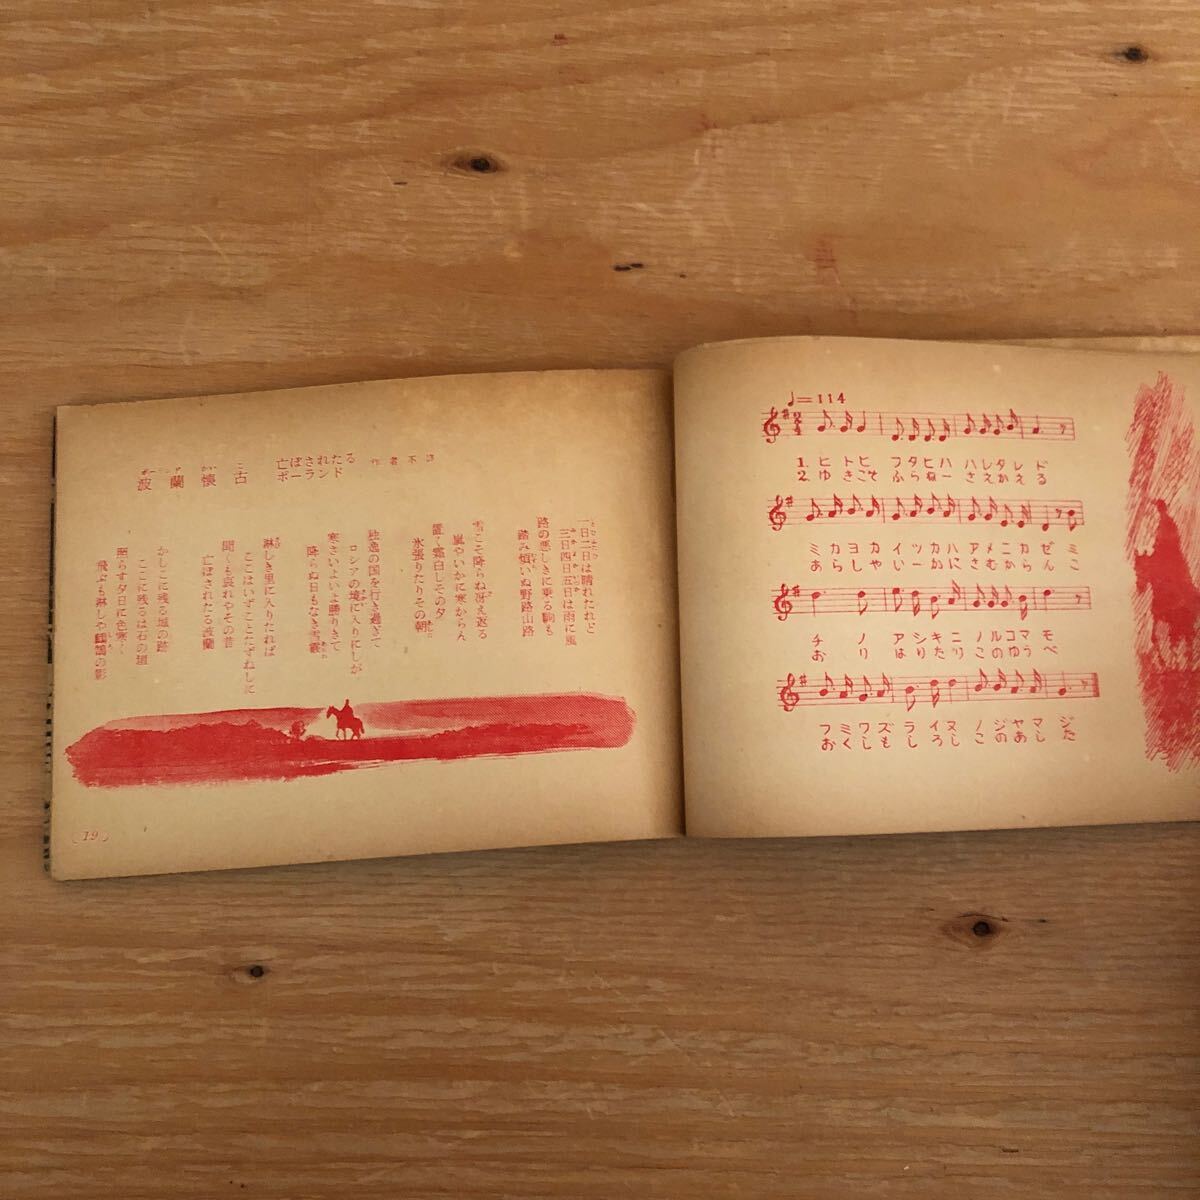 波蘭懐古
ポーランド かい こ
亡ぼされたる
ポーランド
作者不詳
一日二日は晴れたれど
三日四日五日は雨に風
路の悪しきに乗る駒も
踏み煩いぬ野路山路
雪こそ降らね冴え返る
嵐やいかに寒からん
置く霜白しその夕
氷張りたりその朝
独逸の国を行き過ぎて
ロシアの境に入りにしが
寒さいよいよ勝りきて
降らぬ日もなき雪霰
淋しき里に入りたれば
ここはいずことたずねしに
聞くも哀れやその昔
亡ぼされたる波蘭
かしこに残る城の跡
ここに残るは石の垣
照らす夕日に色寒く
飛ぶも淋しや鸛鶴の影
(19)
♩=114
1. ヒトヒ フタヒハ ハレタレド
2. ゆきこそ ふらねー さえかえる
ミカヨカイツカハアメニカゼ ミ
あらしやいーかにさむからん こ
チ ノ アシキニノルコマモ
お り はりたりこのゆうべ
フミワズライヌノジヤマジ
おくしもしろしこのあした